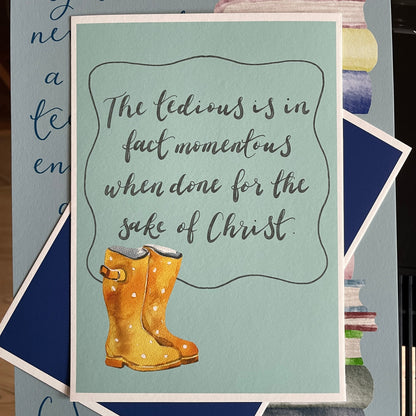 The tedious is in
fact momentous
when done for the
sake of Christ.